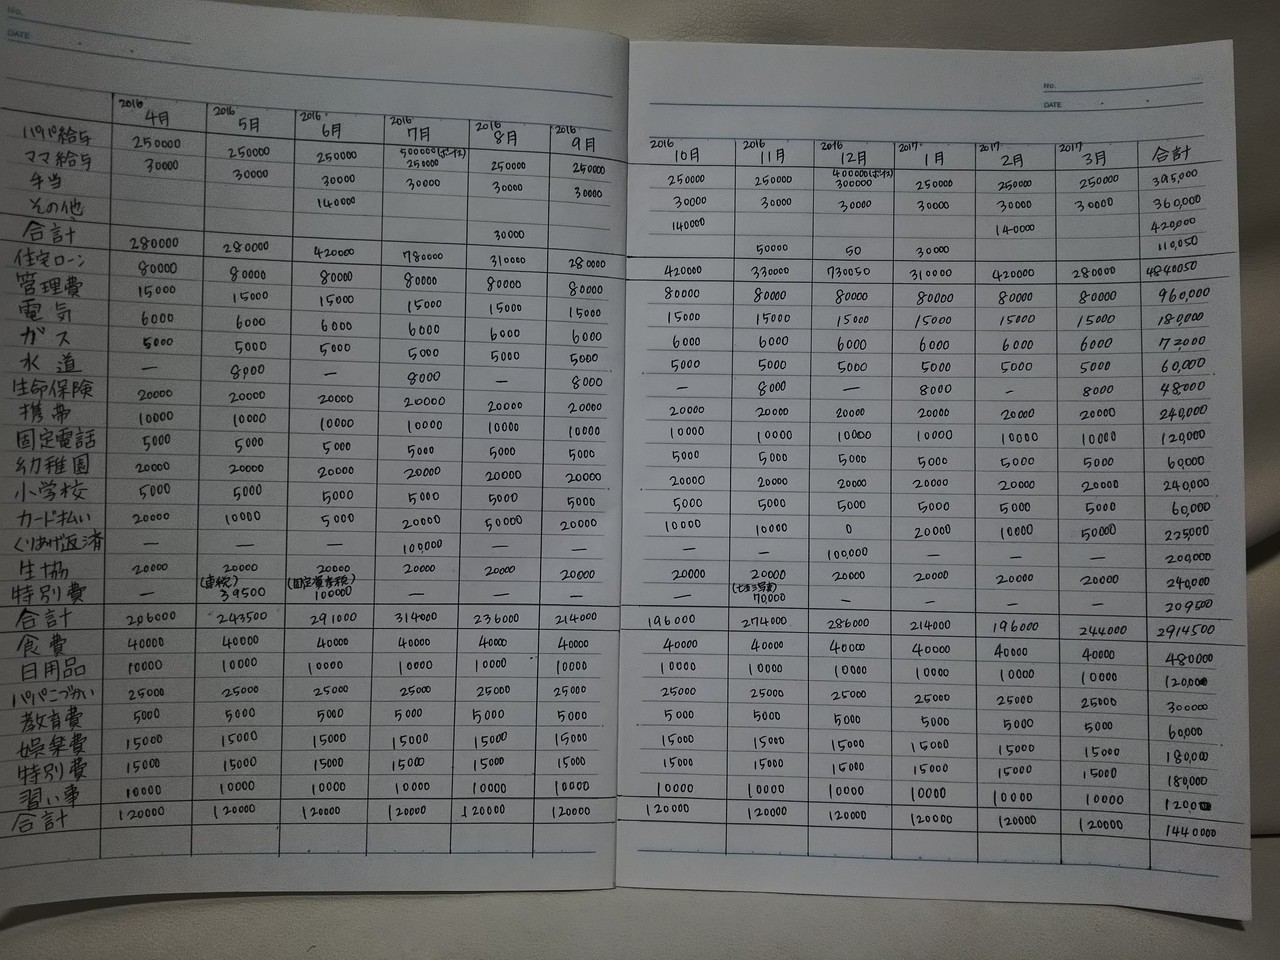 No.
DATE
No.
DATE
2016 4月 2016 5月 2016 6月 2016 7月 2016 8月 2016 9月 2016 10月 2016 11月 2016 12月 2017 1月 2017 2月 2017 3月 合計
パパ給与 250000 250000 250000 500000(ボーナス) 250000 250000 250000 250000 250000 400000(ボーナス) 300000 250000 250000 250000 395,000
ママ給与 30000 30000 30000 30000 30000 30000 30000 30000 30000 30000 30000 30000 360,000
手当 140000 140000 140000 420,000
その他 30000 50000 50 30000 110,050
合計 280000 280000 420000 780000 310000 280000 420000 330000 730050 310000 420000 280000 4840050
住宅ローン 80000 80000 80000 80000 80000 80000 80000 80000 80000 80000 80000 80000 960,000
管理費 15000 15000 15000 15000 15000 15000 15000 15000 15000 15000 15000 15000 180,000
電気 6000 6000 6000 6000 6000 6000 6000 6000 6000 6000 6000 6000 72,000
ガス 5000 5000 5000 5000 5000 5000 5000 5000 5000 5000 5000 5000 60,000
水道 — 8000 — 8000 — 8000 — 8000 — 8000 — 8000 48,000
生命保険 20000 20000 20000 20000 20000 20000 20000 20000 20000 20000 20000 20000 240,000
携帯 10000 10000 10000 10000 10000 10000 10000 10000 10000 10000 10000 10000 120,000
固定電話 5000 5000 5000 5000 5000 5000 5000 5000 5000 5000 5000 5000 60,000
幼稚園 20000 20000 20000 20000 20000 20000 20000 20000 20000 20000 20000 20000 240,000
小学校 5000 5000 5000 5000 5000 5000 5000 5000 5000 5000 5000 5000 60,000
カード払い 20000 10000 5000 20000 50000 20000 10000 10000 0 20000 10000 50000 225000
くりあげ返済 — — — 100,000 — — — — 100,000 — — — 200,000
生協 20000 20000 20000 20000 20000 20000 20000 20000 20000 20000 20000 20000 240,000
特別費 — (車税) 39500 (固定資産税) 100000 — — — — (七五三写真) 70,000 — — — — 209500
合計 206000 243500 291000 314000 236000 214000 196000 274000 286000 214000 196000 244000 2914500
食費 40000 40000 40000 40000 40000 40000 40000 40000 40000 40000 40000 40000 480000
日用品 10000 10000 10000 10000 10000 10000 10000 10000 10000 10000 10000 10000 120,000
パパこづかい 25000 25000 25000 25000 25000 25000 25000 25000 25000 25000 25000 25000 300000
教育費 5000 5000 5000 5000 5000 5000 5000 5000 5000 5000 5000 5000 60,000
娯楽費 15000 15000 15000 15000 15000 15000 15000 15000 15000 15000 15000 15000 180,000
特別費 15000 15000 15000 15000 15000 15000 15000 15000 15000 15000 15000 15000 180,000
習い事 10000 10000 10000 10000 10000 10000 10000 10000 10000 10000 10000 10000
合計 120000 120000 120000 120000 120000 120000 120000 120000 120000 120000 120000 120000 1440000